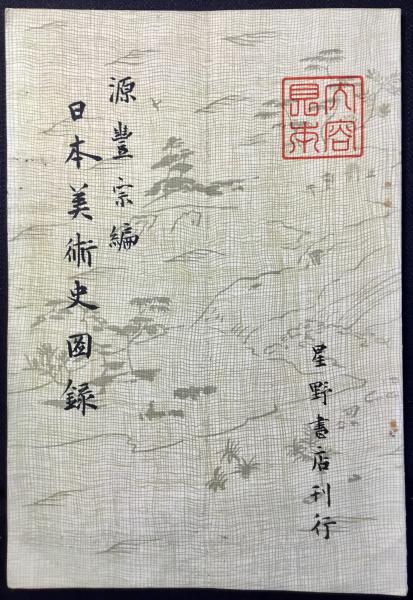 内容
見本
星野書店刊行
源豐宗編
日本美術史図録